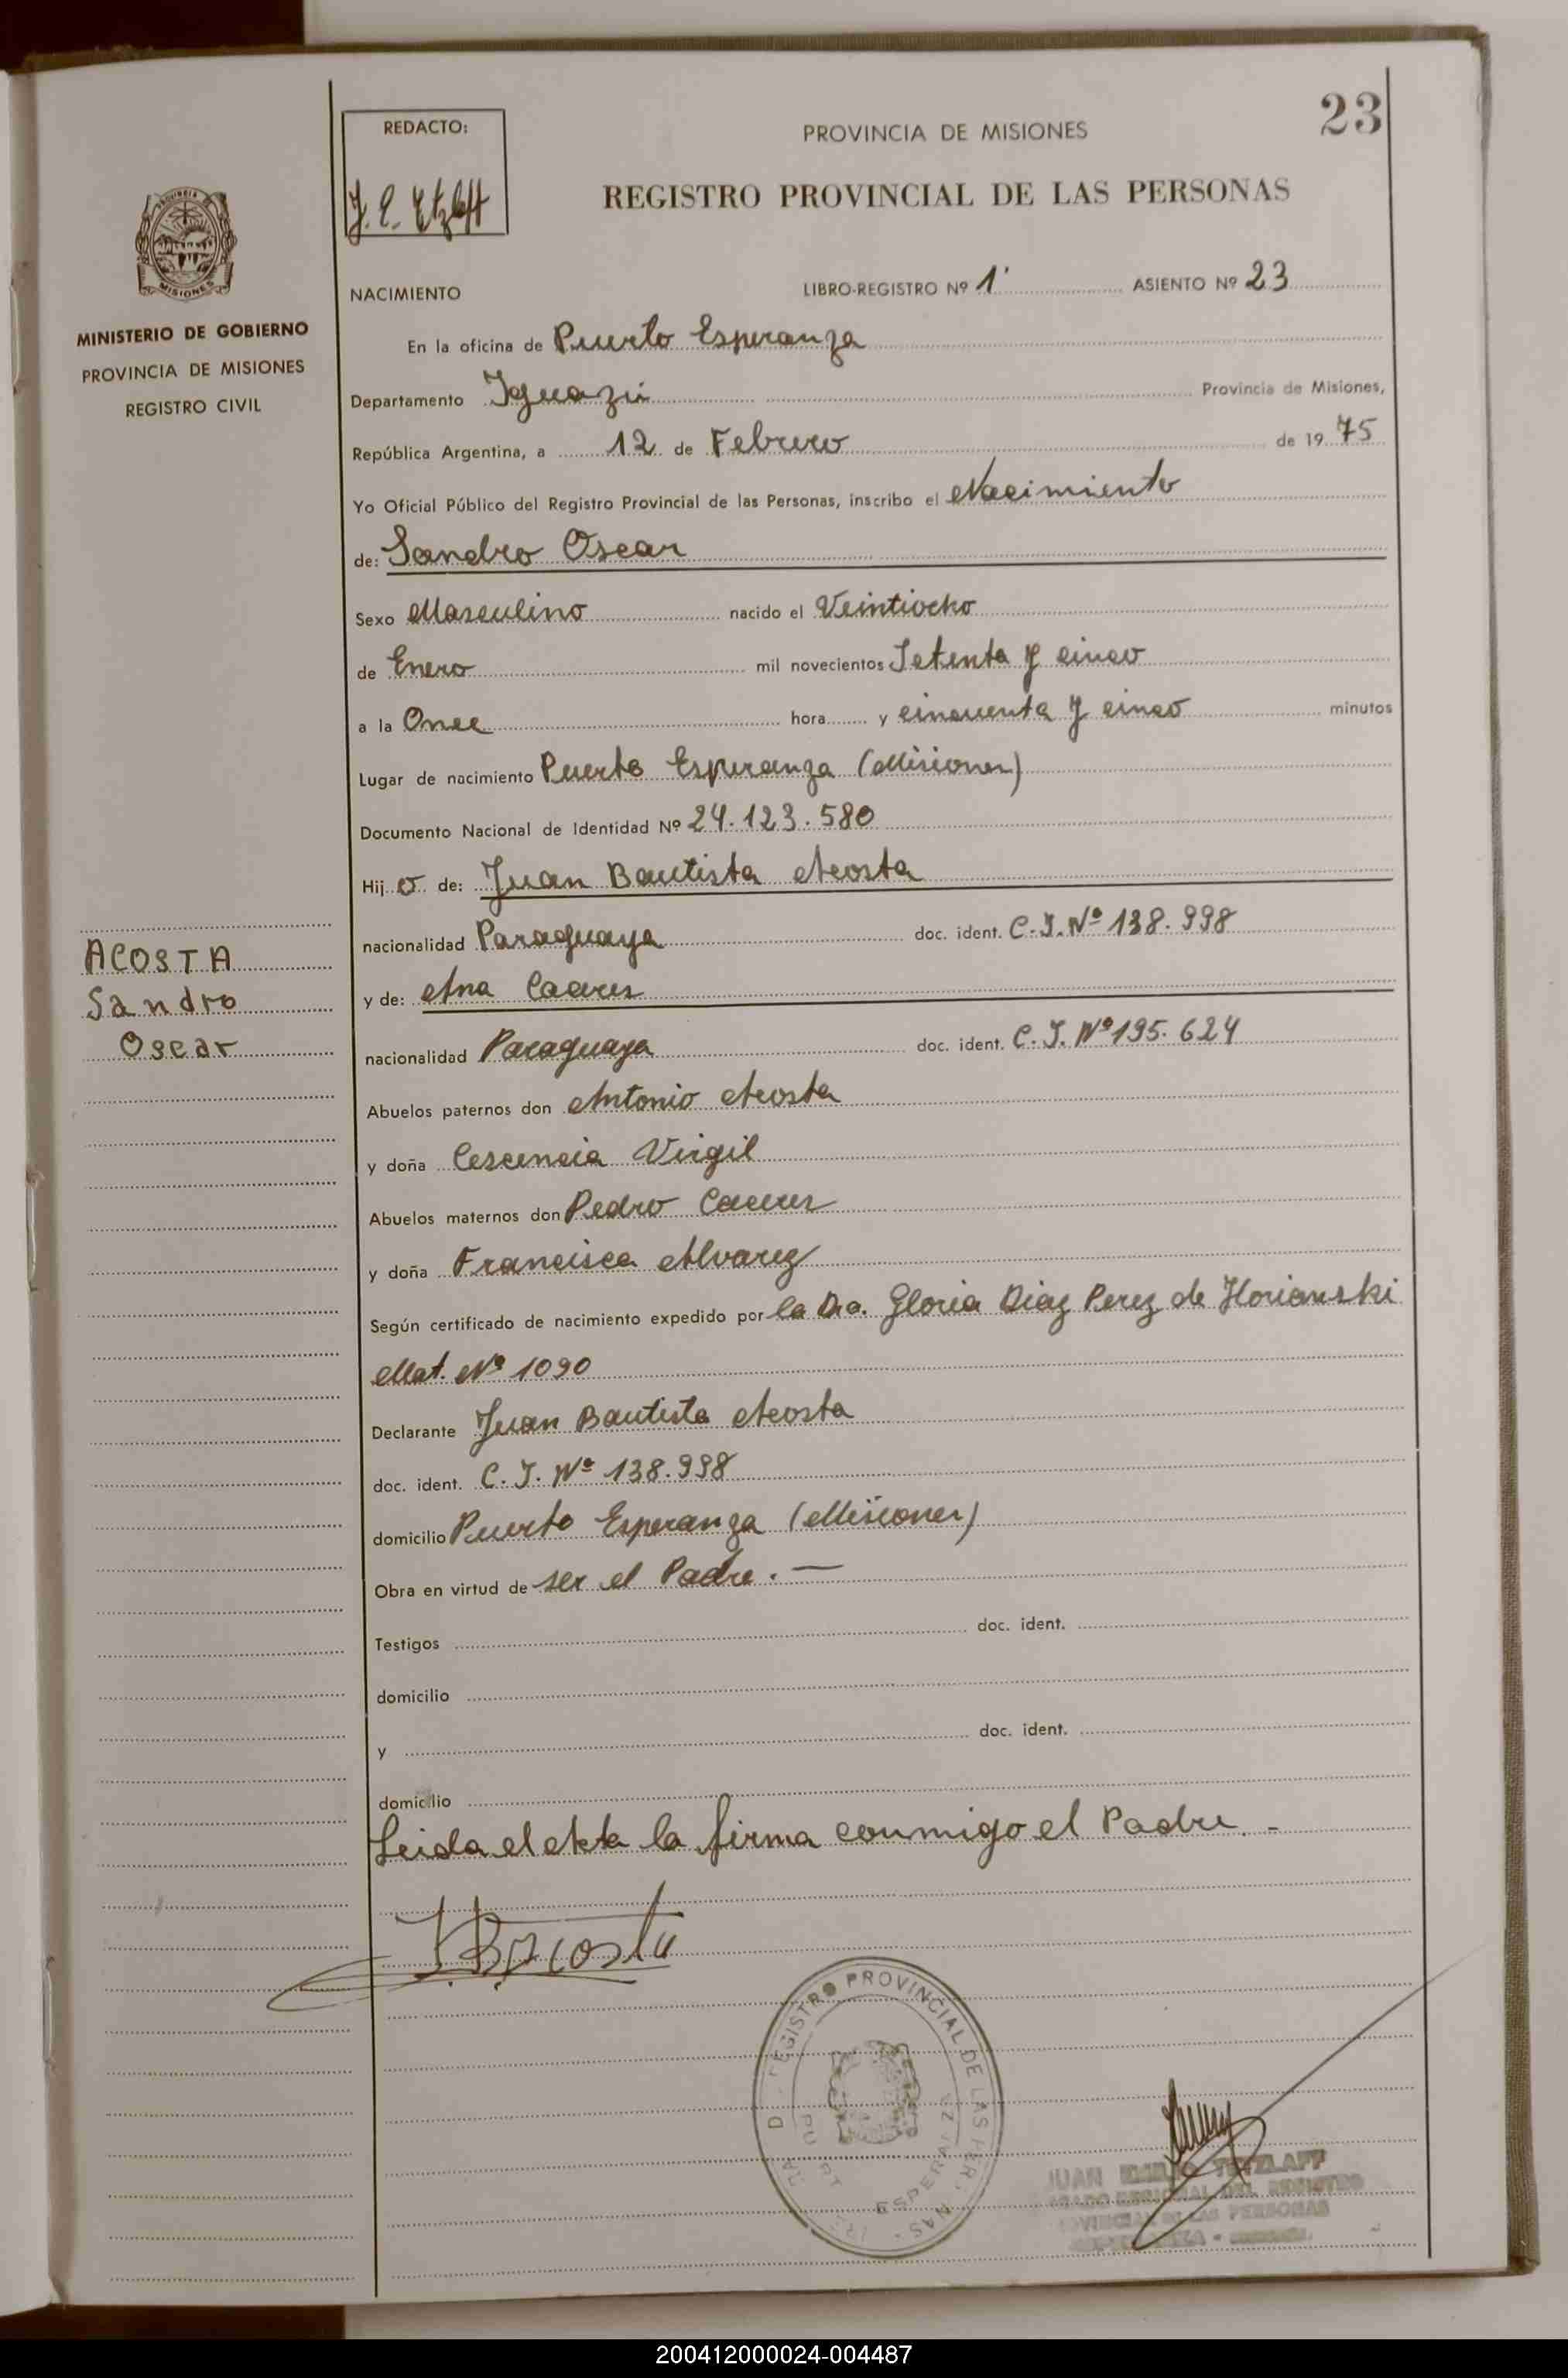 23
REDACTO:
PROVINCIA DE MISIONES
REGISTRO PROVINCIAL DE LAS PERSONAS
MISIONES
MINISTERIO DE GOBIERNO
PROVINCIA DE MISIONES
REGISTRO CIVIL
NACIMIENTO LIBRO-REGISTRO Nº 1 ASIENTO Nº 23
En la oficina de Puerto Esperanza
Departamento Iguazú Provincia de Misiones,
República Argentina, a 12 de Febrero de 1975
Yo Oficial Público del Registro Provincial de las Personas, inscribo el Nacimiento
de: Sandro Oscar
Sexo Masculino nacido el Veintiocho
de Enero mil novecientos Setenta y cinco
a la Once hora y cincuenta y cinco minutos
Lugar de nacimiento Puerto Esperanza (Misiones)
Documento Nacional de Identidad Nº 24.123.580
Hijo de: Juan Bautista Acosta
nacionalidad Paraguaya doc. ident. C.I. Nº 138.998
y de: Ana Caceres
nacionalidad Paraguaya doc. ident. C.I. Nº 195.624
ACOSTA
Sandro
Oscar
Abuelos paternos don Antonio Acosta
y doña Cescencia Virgil
Abuelos maternos don Pedro Caceres
y doña Francisca Alvarez
Según certificado de nacimiento expedido por la Dra. Gloria Diaz Perez de Horianski
Mat. Nº 1090
Declarante Juan Bautista Acosta
doc. ident. C.I. Nº 138.998
domicilio Puerto Esperanza (Misiones)
Obra en virtud de ser el Padre.—
Testigos doc. ident.
domicilio
y doc. ident.
domicilio
Leida el Acta la firma conmigo el Padre.-
J.B.Acosta
REGISTRO PROVINCIAL DE LAS
JUAN EMILIO TETZLAFF
REGIONAL DEL REGISTRO
DE LAS PERSONAS
200412000024-004487